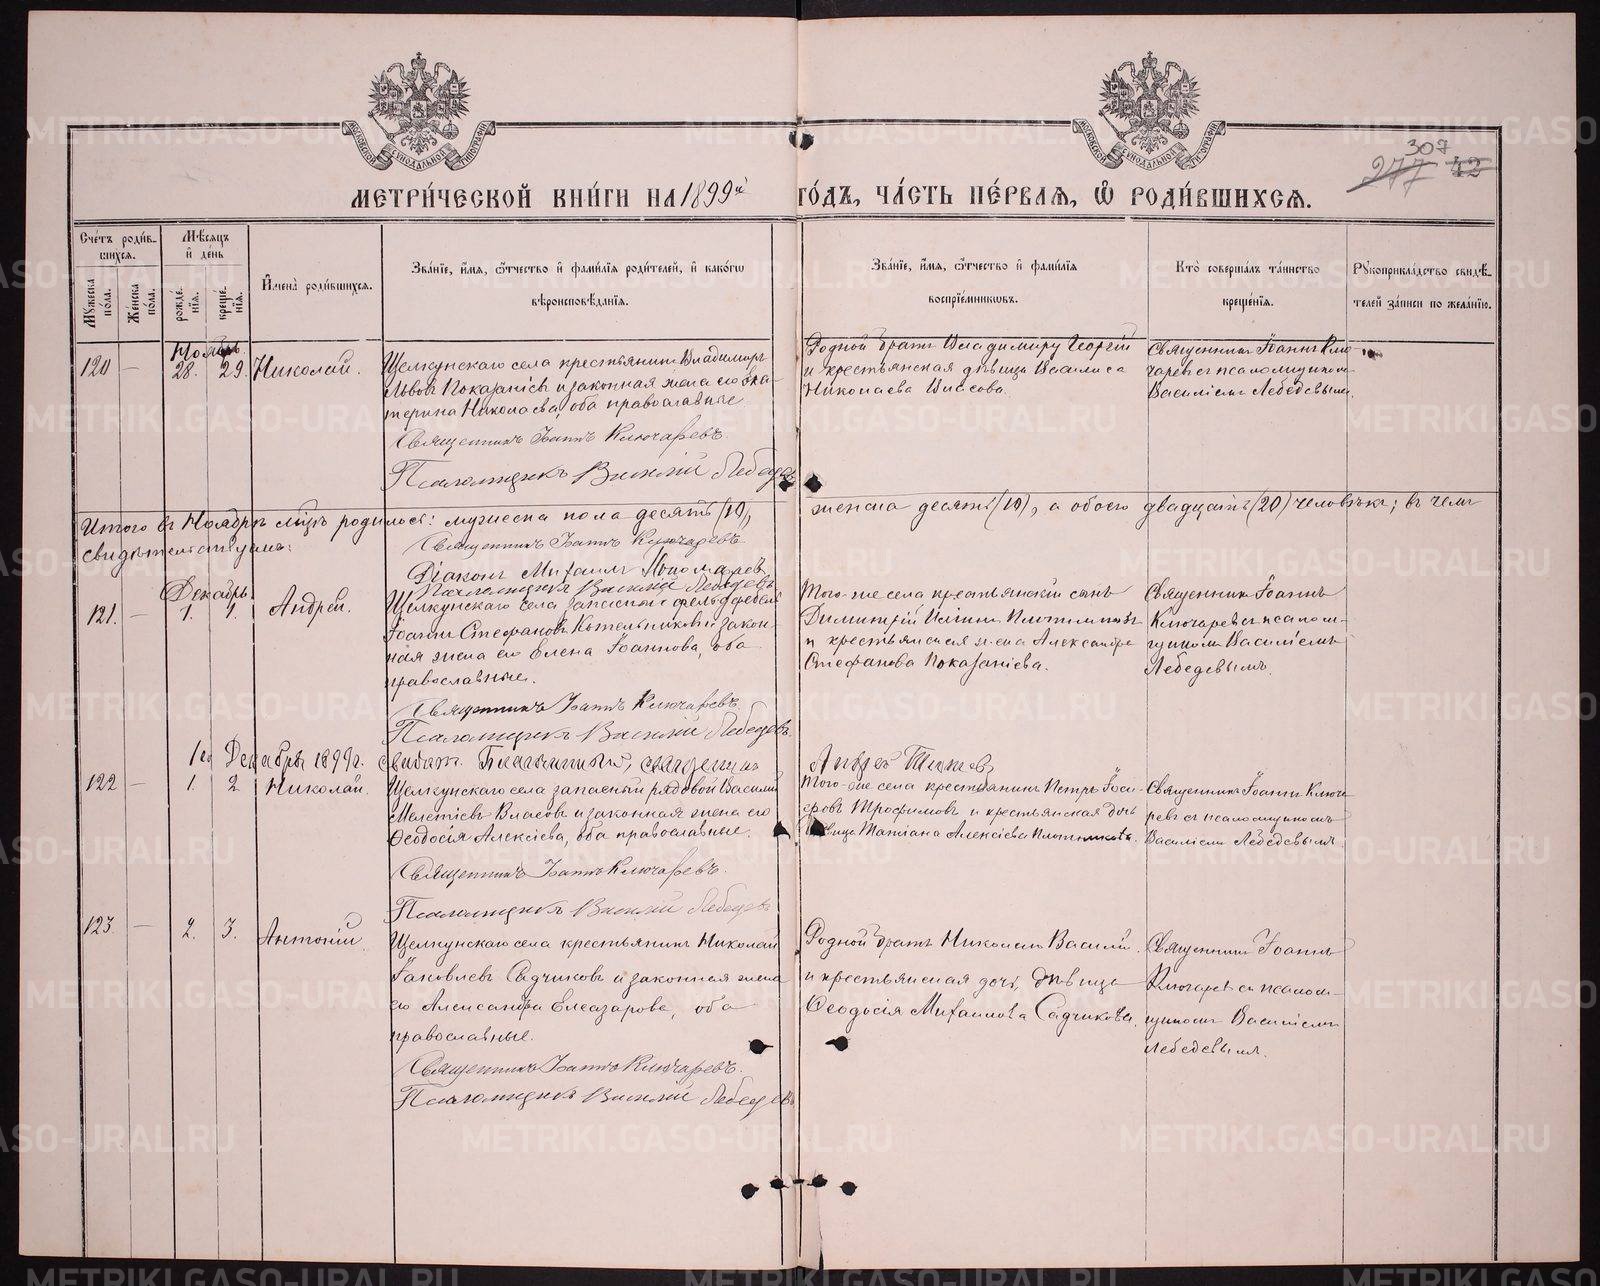 МОСКОВСКОЙ СУНОДАЛЬНОЙ ТИПОГРАФІИ
МОСКОВСКОЙ СУНОДАЛЬНОЙ ТИПОГРАФІИ
307
277 42
МЕТРИ́ЧЕСКОЙ КНИ́ГИ НА 1899й ГО́ДЪ, ЧА́СТЬ ПЕ́РВАЯ, Ѡ РОДИ́ВШИХСЯ.
Сче́тъ роди́в-
шихся.
Мѣ́сяцъ
и҆ де́нь
Му́жеска по́ла.
Же́нска по́ла.
рожде́-нїя.
креще́-нїя.
И҆мена̀ роди́вшихся.
Зва́нїе, и҆́мя, ѻ҆́тчество и҆ фами́лїя роди́телей, и҆ како́гѡ
вѣроисповѣ́данїя.
Зва́нїе, и҆́мя, ѻ҆́тчество и҆ фами́лїя
воспрїе́мникѡвъ.
Кто̀ соверша́лъ та́инство
креще́нїя.
Рꙋкоприкла́дство свидѣ́-
телей за́писи по жела́нїю.
Ноябрь
120 — 28. 29. Николай.
Щелкунскаго села крестьянинъ Владимиръ
Львовъ Показаніевъ и законная жена его Ека-
терина Николаева, оба православные
Священникъ Іоаннъ Ключаревъ.
Псаломщикъ Василій Лебедевъ
Родной братъ Владимиру Георгій
и крестьянская дѣвица Василиса
Николаева Власова.
Священникъ Іоаннъ Клю-
чаревъ съ псаломщикомъ
Василіемъ Лебедевымъ.
Итого въ Ноябрѣ м-цѣ родилось: мужеска пола десять (10), женска десять (10), а обоего двадцать (20) человѣкъ; въ чемъ
свидѣтельствуемъ:
Священникъ Іоаннъ Ключаревъ
Діаконъ Михаилъ Пономаревъ
Псаломщикъ Василій Лебедевъ
Декабрь
121. — 1. 1. Андрей.
Щелкунскаго села запасной фельдфебель
Іоаннъ Стефановъ Котельниковъ и закон-
ная жена его Елена Іоаннова, оба
православные.
Священникъ Іоаннъ Ключаревъ
Псаломщикъ Василій Лебедевъ.
Того-же села крестьянскій сынъ
Димитрій Плотниковъ
и крестьянская жена Александра
Стефанова Показаніева.
Священникъ Іоаннъ
Ключаревъ съ псалом-
щикомъ Василіемъ
Лебедевымъ.
Декабрь 1899 г. Благочинный, священникъ
122 — 1. 2 Николай.
Щелкунскаго села запасный рядовой Василій
Мелетіевъ Власовъ и законная жена его
Ѳеодосія Алексіева, оба православные.
Священникъ Іоаннъ Ключаревъ.
Псаломщикъ Василій Лебедевъ
Того-же села крестьянинъ Петръ Іоси-
фовъ Трофимовъ и крестьянская дочь
дѣвица Татіана Алексіева Плотникова.
Священникъ Іоаннъ Ключа-
ревъ съ псаломщикомъ
Василіемъ Лебедевымъ.
123. — 2. 3. Антоній.
Щелкунскаго села крестьянинъ Николай
Іаковлевъ Садчиковъ и законная жена
его Александра Елеазарова, оба
православные.
Священникъ Іоаннъ Ключаревъ.
Псаломщикъ Василій Лебедевъ
Родной братъ Николаю Василій
и крестьянская дочь, дѣвица
Ѳеодосія Михаилова Садчикова.
Священникъ Іоаннъ
Ключаревъ съ псалом-
щикомъ Василіемъ
Лебедевымъ.
METRIKI.GASO-URAL.RU